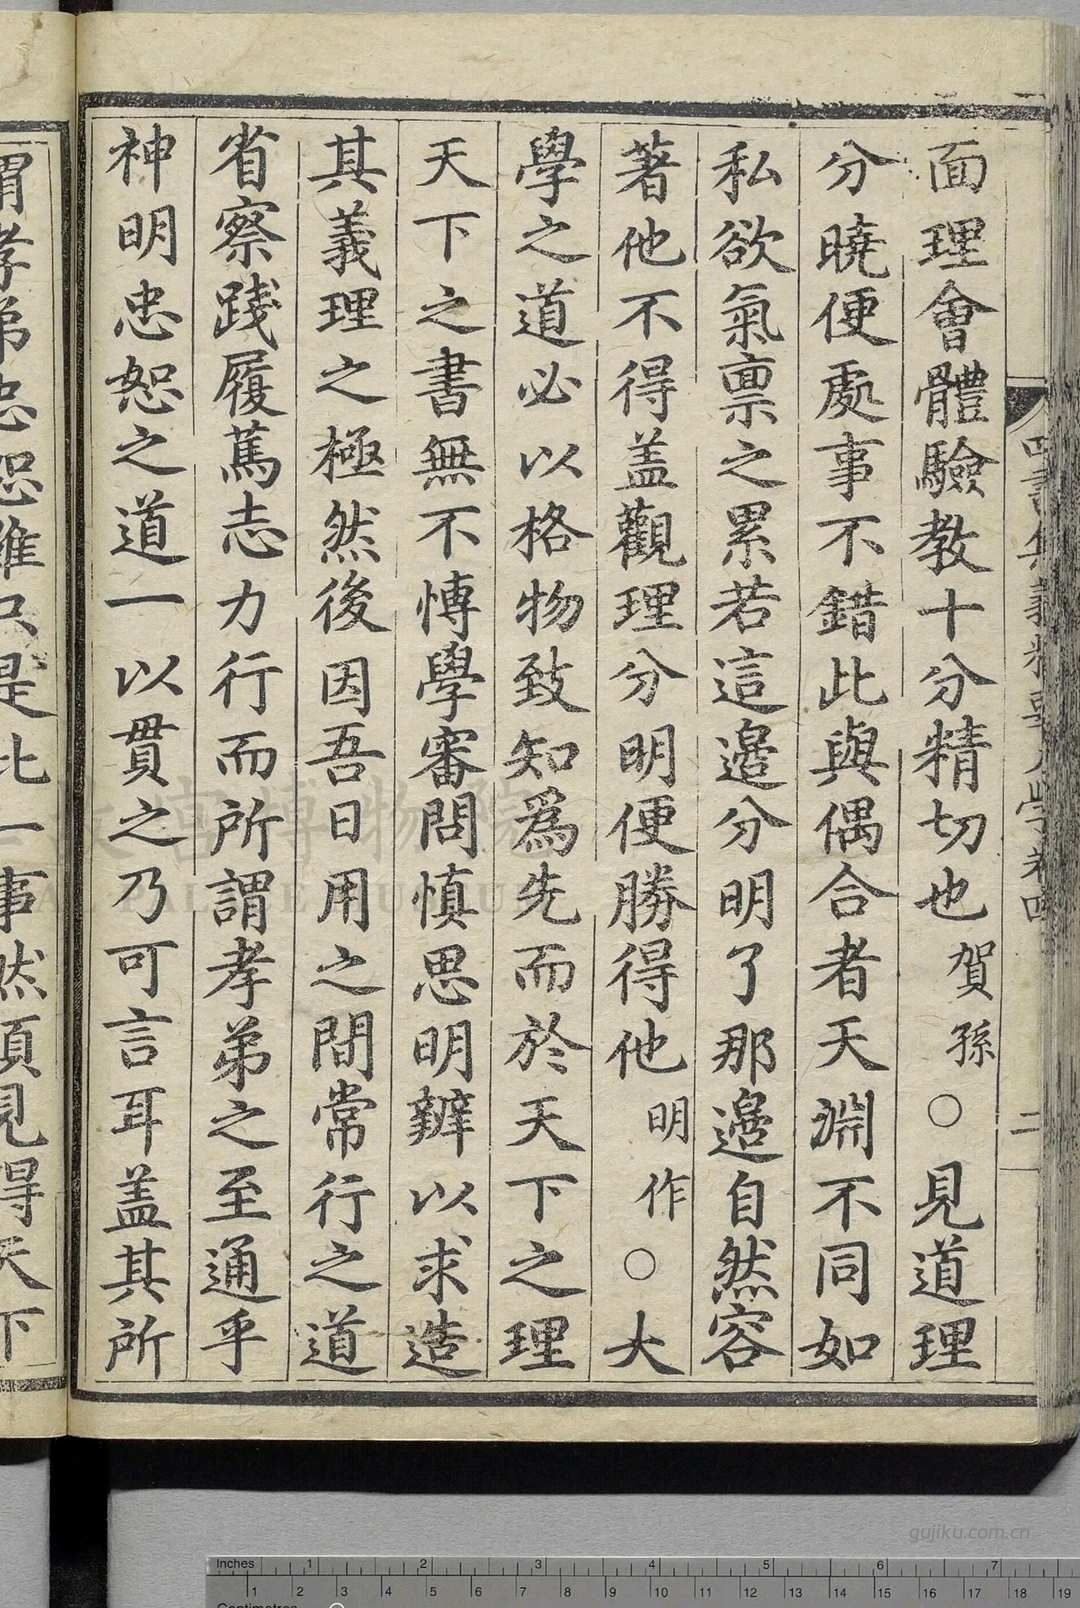 面理會體驗教十分精切也賀孫○見道理
分曉便處事不錯此與偶合者天淵不同如
私欲氣禀之累若這邊分明了那邊自然容
著他不得盖觀理分明便勝得他明作○大
學之道必以格物致知爲先而於天下之理
天下之書無不愽學審問慎思明辨以求造
其義理之極然後因吾日用之間常行之道
省察踐履篤志力行而所謂孝弟之至通乎
神明忠恕之道一以貫之乃可言耳盖其所
是此一事然須見得天下
gujiku.com.cn
Inches 1 2 3 4 5 6 7
1 2 3 4 5 6 7 8 9 10 11 12 13 14 15 16 17 18 19